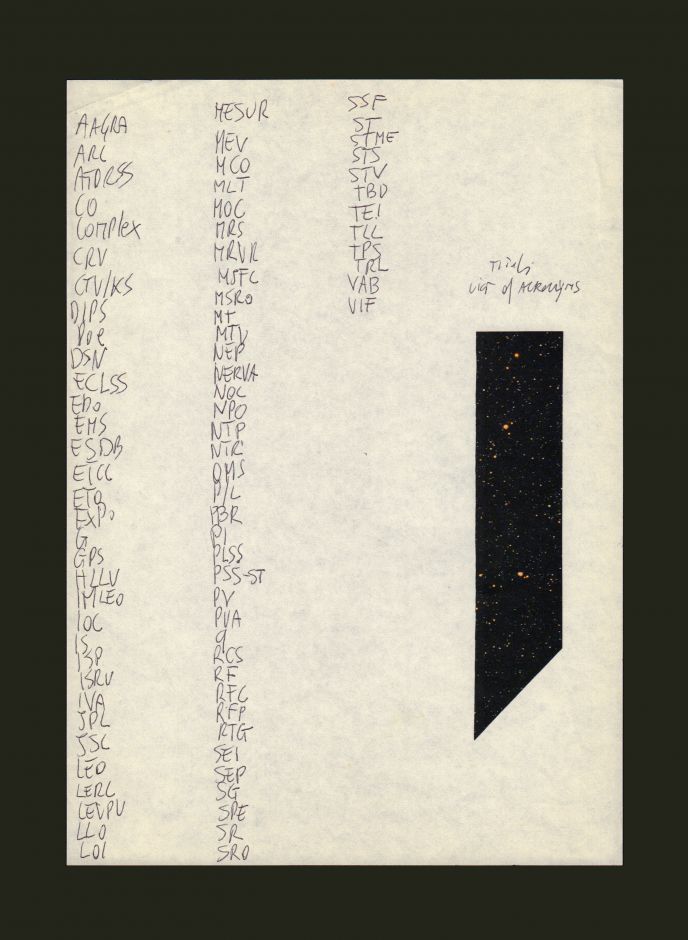 AAGRA
ARC
ATDRSS
CO
Complex
CRV
CTV/KS
D/PS
DOE
DSN
ECLSS
EDO
EMS
ESDB
ETCC
ETO
EXPO
G
GPS
HLLV
IMLEO
IOC
IS
ISP
ISRU
IVA
JPL
JSC
LEO
LERC
LEVPU
LLO
LOI
MESUR
MEV
MCO
MLT
MOC
MRS
MRVR
MSFC
MSRO
MT
MTV
NEP
NERVA
NOC
NPO
NTP
NTR
OMS
P/L
PBR
PI
PLSS
PSS-ST
PV
PVA
q
RCS
RF
RFC
RFP
RTG
SEI
SEP
SG
SPE
SR
SRO
SSF
ST
STME
STS
STV
TBD
TEI
TLL
TPS
TRL
VAB
VIF
of ACRONYMS